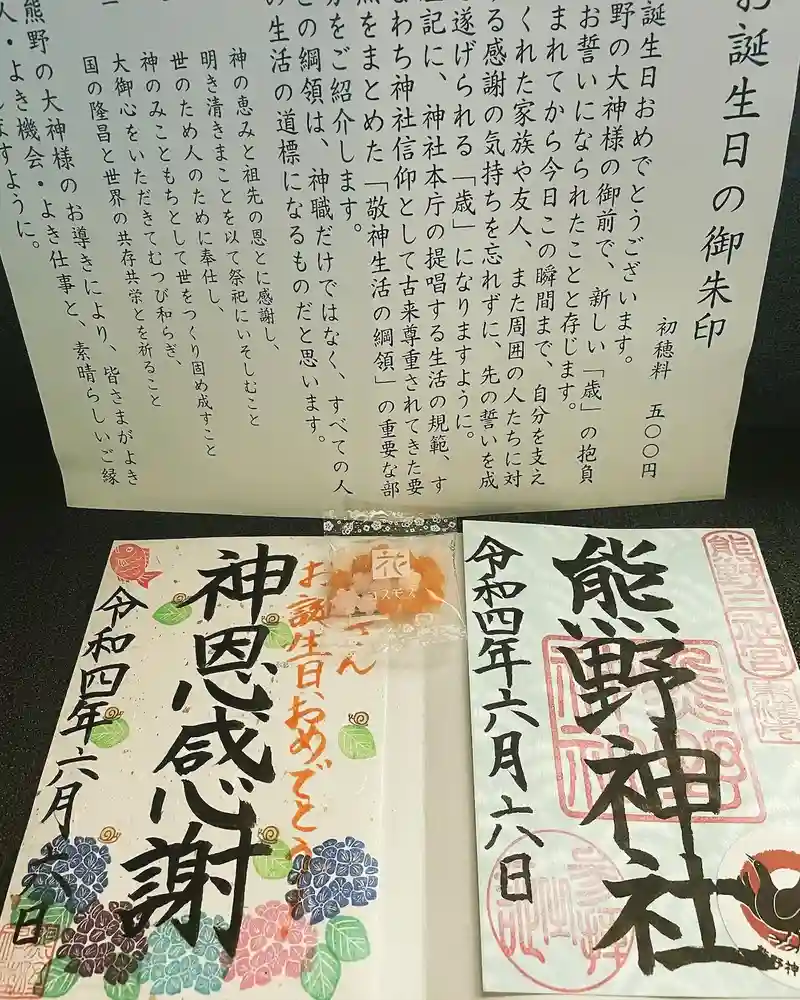 お誕生日の御朱印
初穂料 五〇〇円
誕生日おめでとうございます。
野の大神様の御前で、新しい「歳」の抱負
お誓いになられたことと存じます。
まれてから今日この瞬間まで、自分を支え
くれた家族や友人、また周囲の人たちに対
る感謝の気持ちを忘れずに、先の誓いを成
遂げられる「歳」になりますように。
記に、神社本庁の提唱する生活の規範、す
わち神社信仰として古来尊重されてきた要
をまとめた「敬神生活の綱領」の重要な部
をご紹介します。
の綱領は、神職だけではなく、すべての人
の生活の道標になるものだと思います。
神の恵みと祖先の恩とに感謝し、
明き清きまことを以て祭祀にいそしむこと
世のため人のために奉仕し、
神のみこともちとして世をつくり固め成すこと
大御心をいただきてむつび和らぎ、
国の隆昌と世界の共存共栄とを祈ること
熊野の大神様のお導きにより、皆さまがよき
人・よき機会・よき仕事と、素晴らしいご縁
ますように。
花
コスモス
さん
お誕生日おめでとう
神恩感謝
令和四年六月六日
熊野三社宮
熊野神社
熊野神社
参拝
令和四年六月六日
熊野神